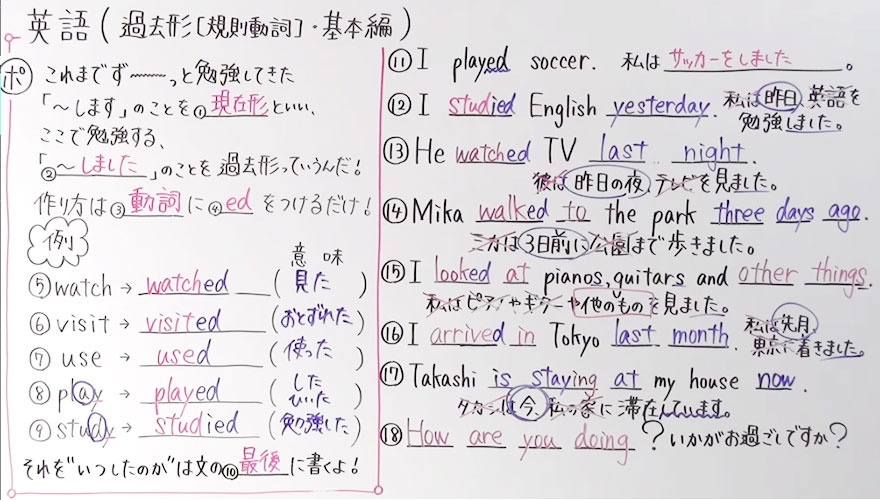 英語(過去形[規則動詞]・基本編)
ポ これまでず〜〜〜っと勉強してきた
「〜します」のことを①現在形といい、
ここで勉強する、
「②〜しました」のことを過去形っていうんだ!
作り方は③動詞に④edをつけるだけ!
例
意味
⑤watch → watched (見た)
⑥visit → visited (おとずれた)
⑦use → used (使った)
⑧play → played (した ひいた)
⑨study → studied (勉強した)
それを"いつしたのか"は文の⑩最後に書くよ!
⑪I played soccer. 私はサッカーをしました。
⑫I studied English yesterday. 私は昨日、英語を
勉強しました。
⑬He watched TV last night.
彼は昨日の夜、テレビを見ました。
⑭Mika walked to the park three days ago.
ミカは3日前に公園まで歩きました。
⑮I looked at pianos, guitars and other things.
私はピアノやギターや他のものを見ました。
⑯I arrived in Tokyo last month. 私は先月、
東京に着きました。
⑰Takashi is staying at my house now.
タカシは今、私の家に滞在しています。
⑱How are you doing? いかがお過ごしですか?